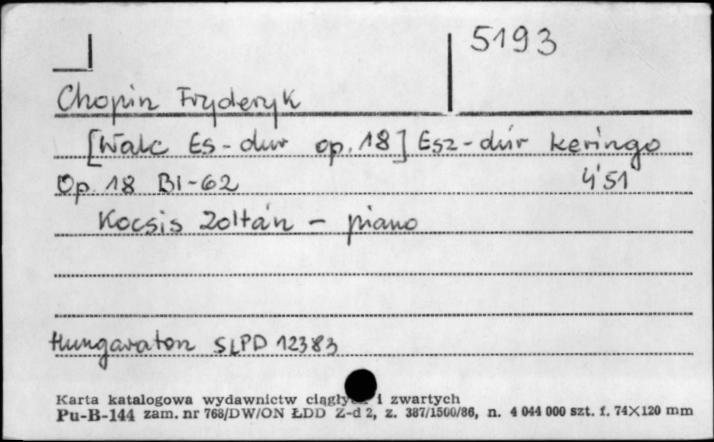 5193
Chopin Fryderyk
[Walc Es-dur op. 18] Esz-dúr keringo
Op. 18 BI-62 4'51
Kocsis Zoltán - piano
Hungaraton SLPD 12383
Karta katalogowa wydawnictw ciągłych i zwartych
Pu-B-144 zam. nr 768/DW/ON ŁDD Z-d 2, z. 387/1500/86, n. 4 044 000 szt. f. 74×120 mm